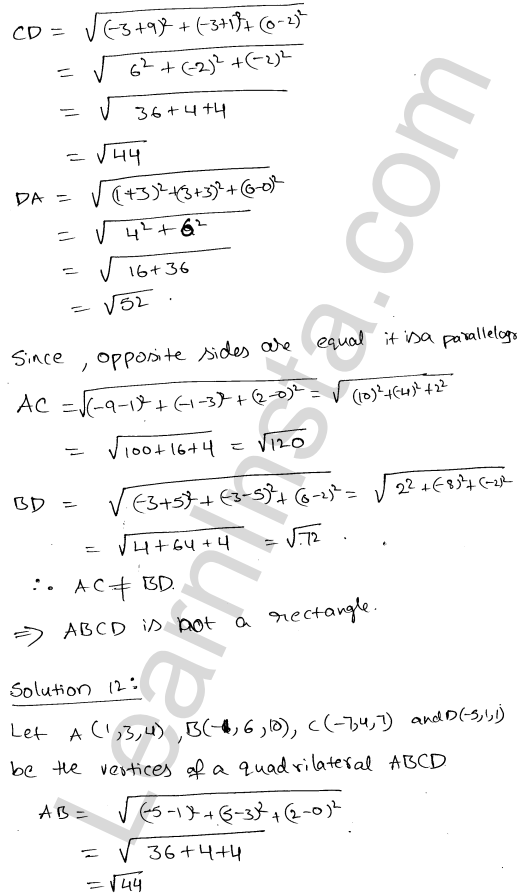 CD = √(-3+9)² + (-3+1)² + (0-2)²
= √6² + (-2)² + (-2)²
= √36+4+4
= √44
DA = √(1+3)² + (3+3)² + (0-0)²
= √4² + 6²
= √16+36
= √52 .
Since, opposite sides are equal it is a parallelogr
AC = √(-9-1)² + (-1-3)² + (2-0)² = √(10)² + (-4)² + 2²
= √100+16+4 = √120
BD = √(-3+5)² + (-3-5)² + (0-2)² = √2² + (-8)² + (-2)²
= √4+64+4 = √72 .
∴ AC ≠ BD.
⇒ ABCD is not a rectangle.
Solution 12:
Let A (1,3,4), B(-1,6,10), C(-7,4,7) and D(-5,1,1)
be the vertices of a quadrilateral ABCD
AB = √(-5-1)² + (5-3)² + (2-0)²
= √36+4+4
= √44
LearnInsta.com